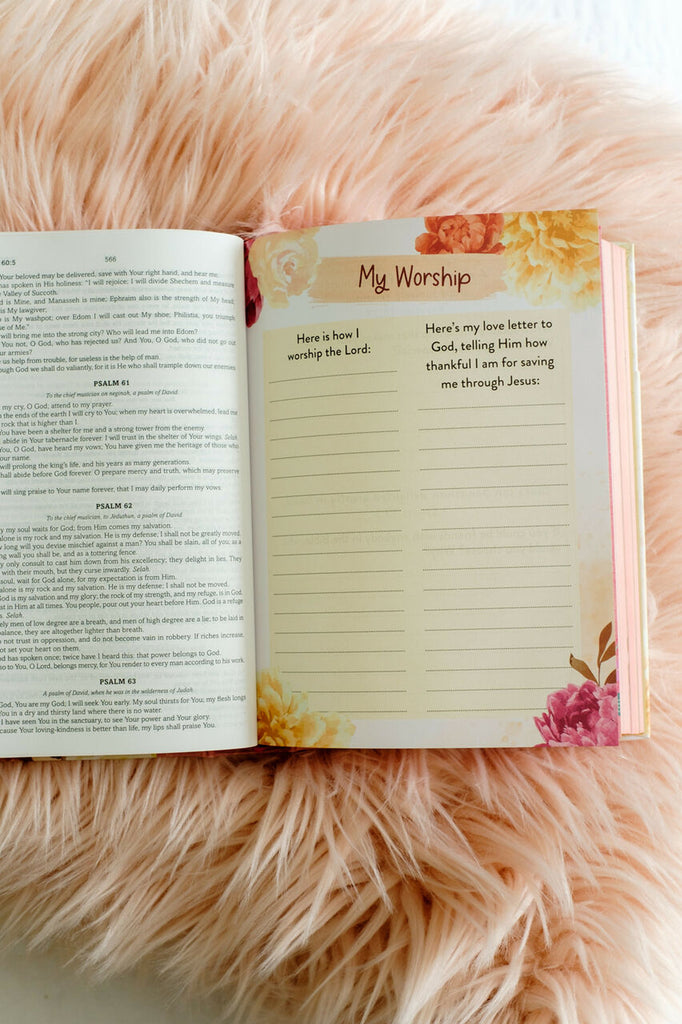 60:5 566
Your beloved may be delivered, save with Your right hand, and hear me.
has spoken in His holiness: "I will rejoice; I will divide Shechem and measure
Valley of Succoth.
is Mine, and Manasseh is mine; Ephraim also is the strength of My head;
is My lawgiver;
is My washpot; over Edom I will cast out My shoe; Philistia, you triumph
of Me."
will bring me into the strong city? Who will lead me into Edom?
You not, O God, who has rejected us? And You, O God, who did not go out
our armies?
us help from trouble, for useless is the help of man.
God we shall do valiantly, for it is He who shall trample down our enemies
PSALM 61
To the chief musician on neginah, a psalm of David.
my cry, O God; attend to my prayer.
the ends of the earth I will cry to You; when my heart is overwhelmed, lead me
rock that is higher than I.
You have been a shelter for me and a strong tower from the enemy.
abide in Your tabernacle forever. I will trust in the shelter of Your wings. Selah.
You, O God, have heard my vows; You have given me the heritage of those who
your name.
will prolong the king's life, and his years as many generations.
shall abide before God forever. O prepare mercy and truth, which may preserve
will sing praise to Your name forever, that I may daily perform my vows.
PSALM 62
To the chief musician, to Jeduthun, a psalm of David.
my soul waits for God; from Him comes my salvation.
alone is my rock and my salvation. He is my defense; I shall not be greatly moved.
long will you devise mischief against a man? You shall be slain, all of you; as a
wall you shall be, and as a tottering fence.
only consult to cast him down from his excellency; they delight in lies. They
with their mouth, but they curse inwardly. Selah.
soul, wait for God alone, for my expectation is from Him.
alone is my rock and my salvation. He is my defense; I shall not be moved.
God is my salvation and my glory; the rock of my strength, and my refuge, is in God.
in Him at all times. You people, pour out your heart before Him. God is a refuge
Selah.
men of low degree are a breath, and men of high degree are a lie; to be laid in
balance, they are altogether lighter than breath.
not trust in oppression, and do not become vain in robbery. If riches increase,
not set your heart on them.
has spoken once; twice have I heard this: that power belongs to God.
to You, O Lord, belongs mercy, for You render to every man according to his work.
PSALM 63
A psalm of David, when he was in the wilderness of Judah.
God, You are my God; I will seek You early. My soul thirsts for You; my flesh longs
You in a dry and thirsty land where there is no water.
I have seen You in the sanctuary, to see Your power and Your glory.
Your loving-kindness is better than life, my lips shall praise You.
My Worship
Here is how I
worship the Lord:
Here's my love letter to
God, telling Him how
thankful I am for saving
me through Jesus: